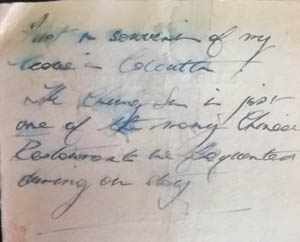 Just a souvenir of my
leave in Calcutta !
The Chung Su is just
one of the many Chinese
Restaurants we frequented
during our stay